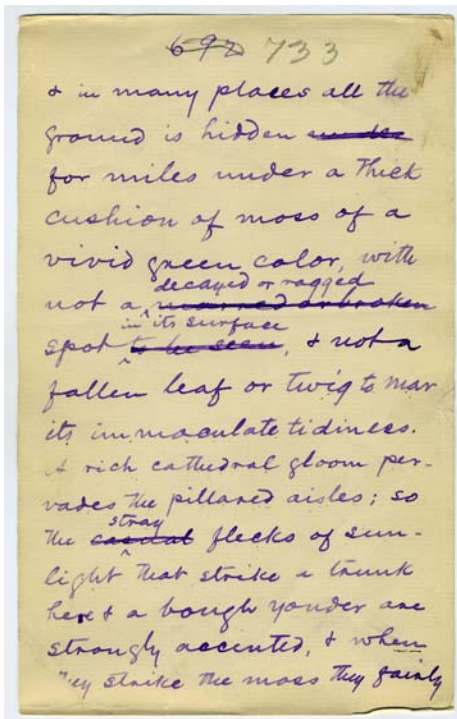 692 733
& in many places all the
ground is hidden under
for miles under a thick
cushion of moss of a
vivid green color, with
decayed or ragged
not a marred or broken
in its surface
spot to be seen, & not a
fallen leaf or twig to mar
its immaculate tidiness.
A rich cathedral gloom per-
vades the pillared aisles; so
stray
the casual flecks of sun-
light that strike a trunk
here & a bough yonder are
strongly accented, & when
they strike the moss they fairly